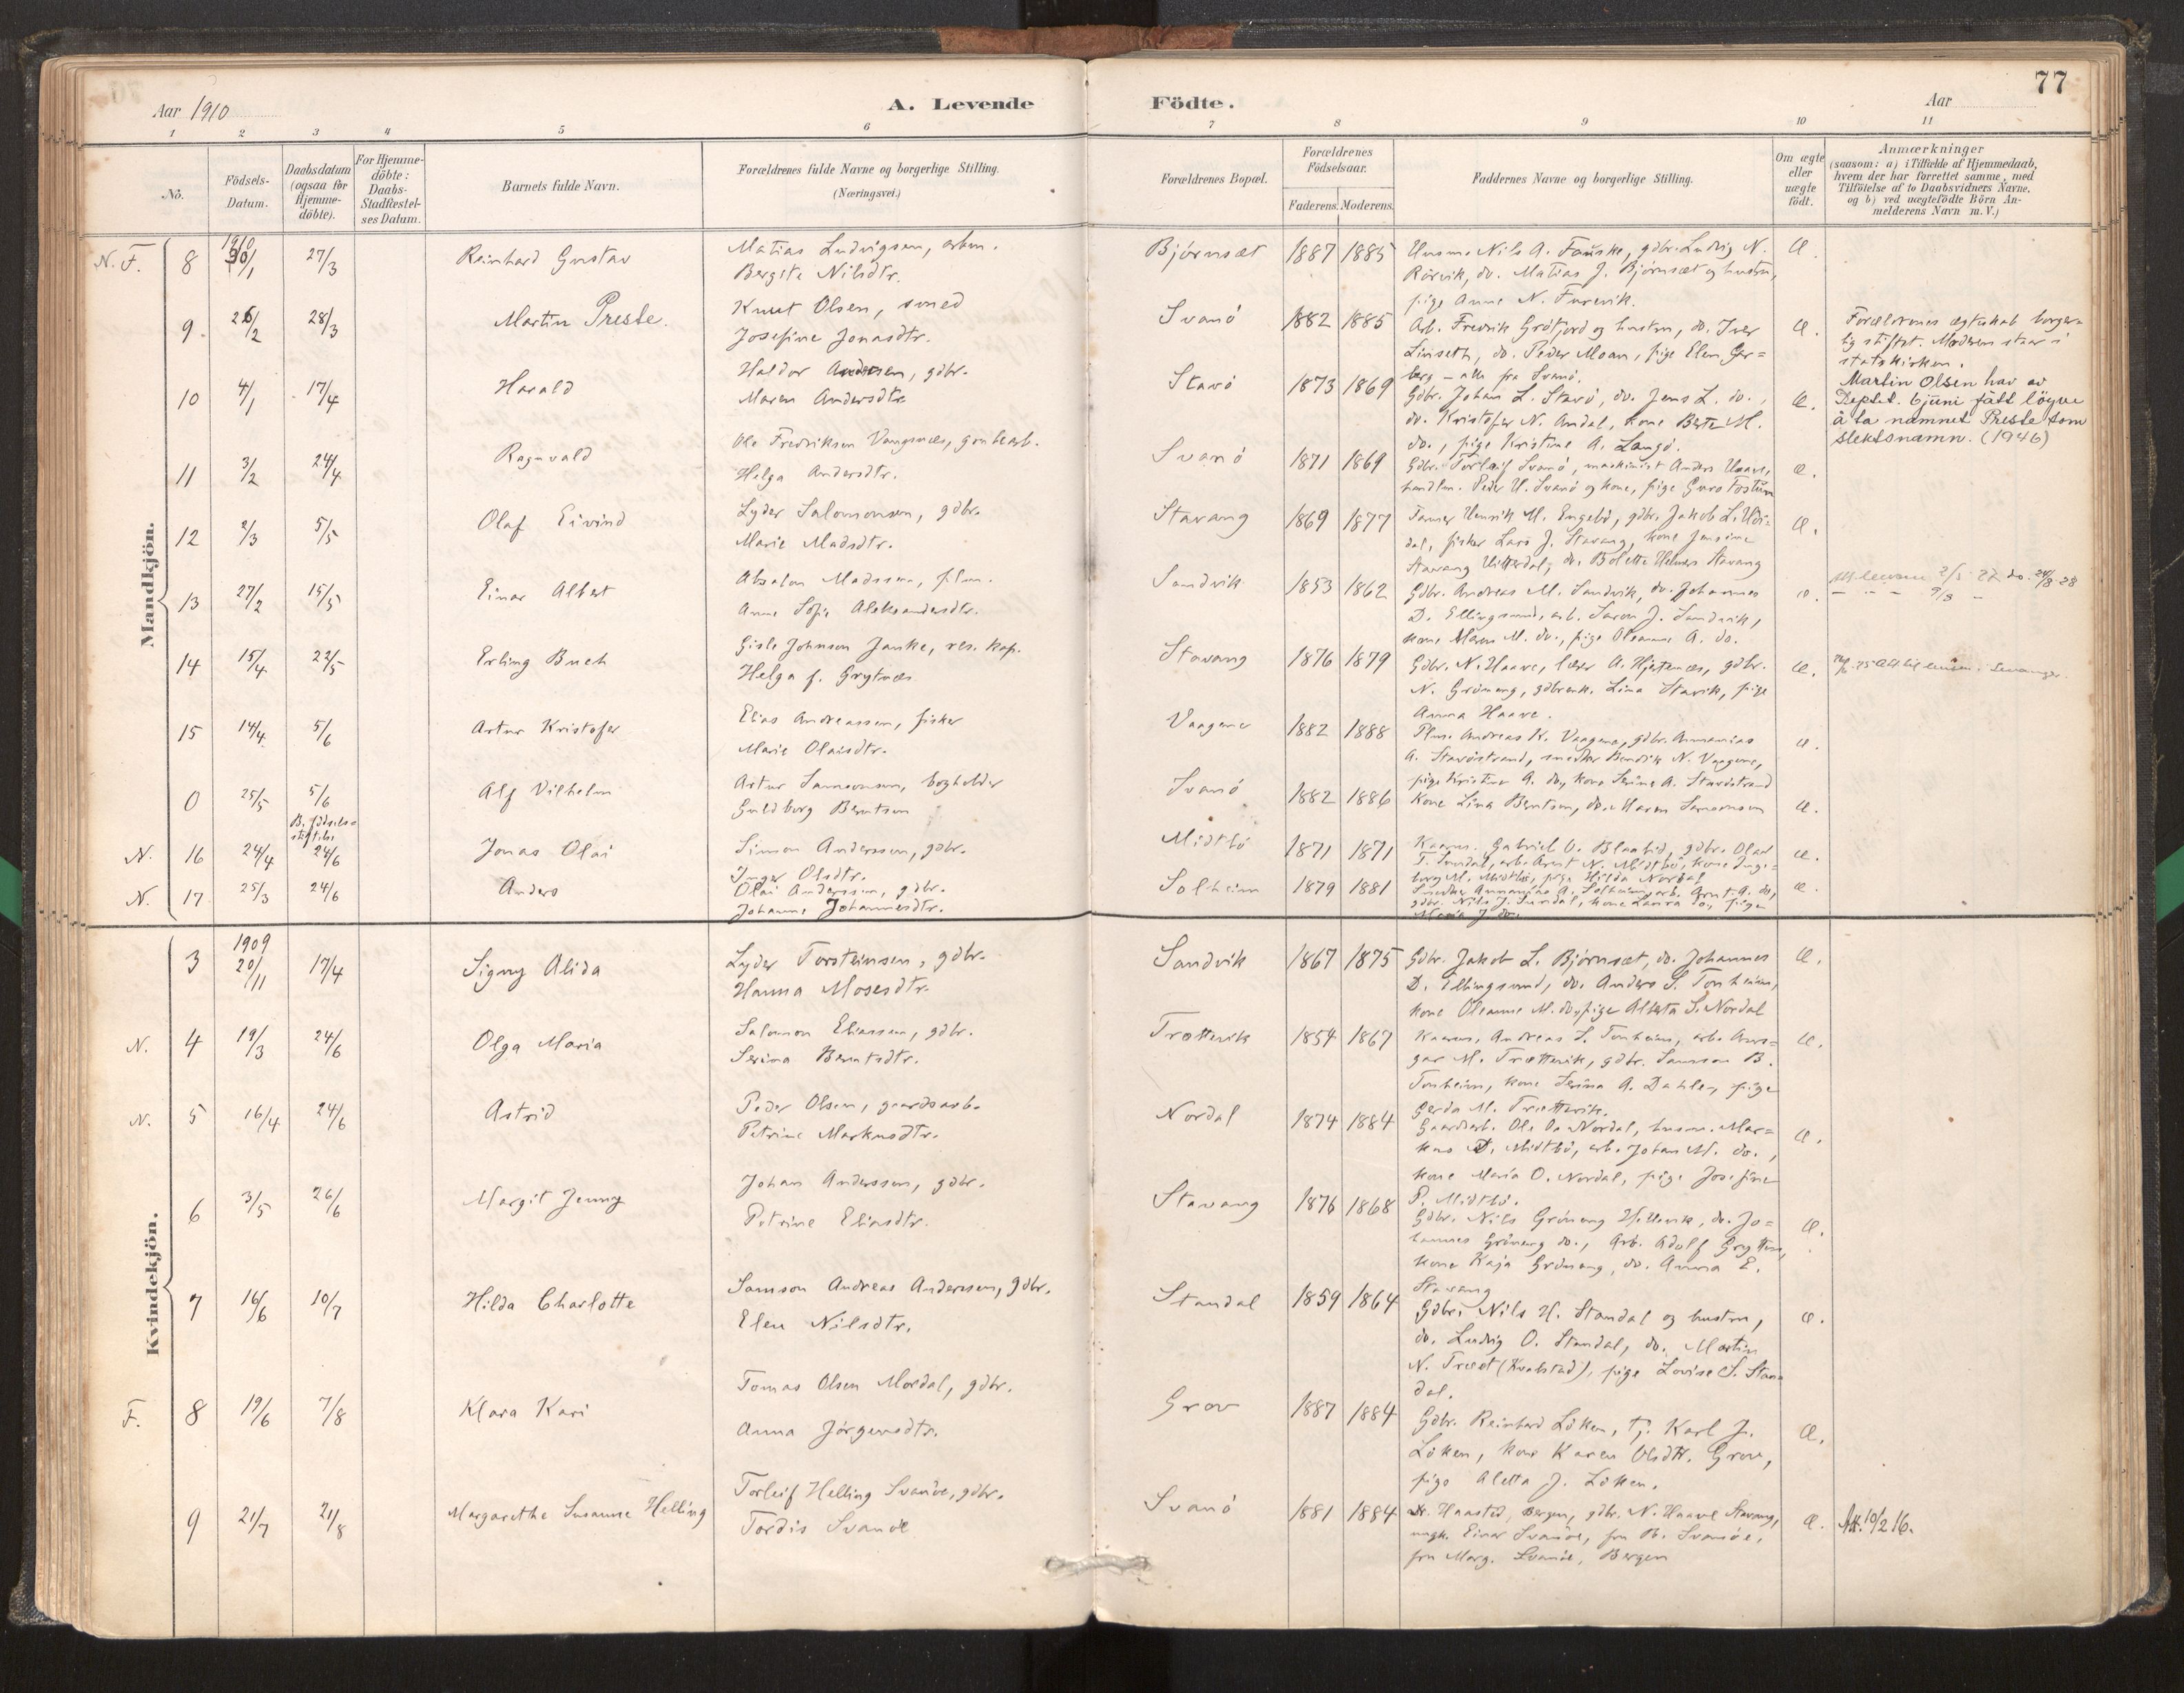 77
Aar 1910
A. Levende Födte.
Aar
1 2 3 4 5 6 7 8 9 10 11
No.
Födsels-Datum.
Daabsdatum (ogsaa for Hjemme-döbte).
For Hjemme-döbte: Daabs-Stadfestel-ses Datum.
Barnets fulde Navn.
Forældrenes fulde Navne og borgerlige Stilling.
(Næringsvei.)
Forældrenes Bopæl.
Forældrenes Födselsaar.
Faderens. Moderens.
Faddernes Navne og borgerlige Stilling.
Om ægte eller uægte födt.
Anmærkninger
(saasom: a) i Tilfælde af Hjemmedaab,
hvem der har forrettet samme, med
Tilföielse af to Daabsvidners Navne,
og b) ved uægtefödte Börn An-
melderens Navn m. V.)
Mandkjön.
N. F. 8 1910 30/1 27/3 Reinhard Gustav
Matias Ludvigsen, arbm.
Bergite Nilsdtr.
Bjørnsæt 1887 1885
Husm. Nils A. Fauske, gdbr. Ludvig N.
Rörvik, do. Matias J. Bjørnsæt og hustru,
pige Anne N. Furevik.
Æ.
9. 26/2 28/3 Martin Preste.
Knut Olsen, smed
Josefine Jonasdtr.
Svanö 1882 1885
Arb. Fredrik Grötfjord og hustru, do. Iver
Linseth, do. Peder Moan, pige Elen Ger=
berg - alle fra Svanö.
Æ.
Forældrenes ægteskab borger=
lig stiftet. Moderen staar i
statskirken.
Martin Olsen hav av
Deptet. 6 juni fått löyve
å ta namnet Preste som
slektsnamn. (1946)
10 4/1 17/4 Harald
Haldor Andersen, gdbr.
Maren Andersdtr.
Stavö 1873 1869
Gdbr. Johan L. Stavö, do. Jens L. do.,
do. Kristofer N. Andal, kone Berte M.
do., pige Kristine A. Langö.
Æ.
11 3/2 24/4 Ragnvald
Ole Fredriksen Vangsnæs, grubearb.
Helga Andersdtr.
Svanö 1871 1869
Gdbr. Torleif Svanö, maskinist Anders Haave,
handlm. Peder H. Svanö og kone, pige Guro
Æ.
12 2/3 5/5 Olaf Eivind
Lyder Salomonsen, gdbr.
Marie Madsdtr.
Stavang 1869 1877
Henrik M. Engebö, gdbr. Jakob L.
dal, fisker Lars J. Stavang, kone Jensine
Stavang do. Bolette Stavang
Æ.
13 27/2 15/5 Einar Albert
Absalon Madssen, plm.
Anne Sofie Aleksandersdtr.
Sandvik 1853 1862
Gdbr. Andreas M. Sandvik, do. Johannes
D. Ellingsund, arb. J. Sandvik,
kone M. do., pige Oleanne A. do.
Æ.
14 15/4 22/5 Erling Buch
Gisle Johnson Janke, res. kap.
Helga f. Grytnæs
Stavang 1876 1879
Gdbr. N. Haave, lærer A. Hjertenæs, gdbr.
N. Grönang, gdbrenk. Lina Stavik, pige
Anna Haave.
Æ.
15 14/4 5/6 Artur Kristofer
Elias Andreassen, fisker
Marie Olaisdtr.
Vaagene 1882 1888
Plm. Andreas K. Vaagene, gdbr. Annanias
A. Stavöstrand, snedker Bendik N. Vaagene,
pige Kristine A. do, kone Serine A. Stavöstrand
Æ.
0 25/5 5/6 Alf Vilhelm
B. födsels=
stiftelse
Artur Samsonsen, bogholder
Guldborg Berntsen
Svanö 1882 1886
Kone Lina Berntsen, do. Maren Samsonsen
Æ.
N. 16 24/4 24/6 Jonas Olai
Simon Anderssen, gdbr.
Inger Olsdtr.
Midtbö 1871 1871
Kaarm. Gabriel O. Blaabid, gdbr. Olav
T. Sundal, arb. Arnt N. Midtbö, kone Inge=
borg M. Midtbö, pige Hilda Nordal
Æ.
N. 17 25/3 24/6 Anders
Olai Anderssen, gdbr.
Johanne Johannesdtr.
Solheim 1879 1881
Snedker Annanias A. Solheim, arb. Arnt A. do,
gdbr. Nils J. Sundal, kone Laura do, pige
Maria J. do.
Æ.
Kvindekjön.
3 1909 20/11 17/4 Signy Alida
Lyder Torsteinsen, gdbr.
Hanna Mosesdtr.
Sandvik 1867 1875
Gdbr. Jakob L. Bjørnsæt, do. Johannes
D. Ellingsund, do. Anders S. Tonheim,
kone Oleanne M. do, pige Alberta S. Nordal
Æ.
N. 4 19/3 24/6 Olga Maria
Salomon Eliassen, gdbr.
Serina Berntsdtr.
Trættevik 1854 1867
Kaarm. Andreas S. Tonheim, arb. Ans=
gar M. Trættevik, gdbr. Samson B.
Tonheim, kone Serina A. Dahle, pige
Gerda M. Trættevik.
Æ.
N. 5 16/4 24/6 Astrid
Peder Olsen, gaardsarb.
Petrine Markusdtr.
Nordal 1874 1884
Gaardarb. Ole O. Nordal, husm. Mar=
kus D. Midtbö, arb. Johan M. do.,
kone Maria O. Nordal, pige Josefine
P. Midtbö.
Æ.
6 3/5 26/6 Margit Jenny
Johan Anderssen, gdbr.
Petrine Eliasdtr.
Stavang 1876 1868
Gdbr. Nils Grönang Hellevik, do. Jo=
hannes Grönang do., Arb. Adolf Grytten,
kone Kaja Grönang, do. Anna E.
Stavang
Æ.
7 16/6 10/7 Hilda Charlotte
Samson Andreas Anderssen, gdbr.
Elen Nilsdtr.
Standal 1859 1864
Gdbr. Nils H. Standal og hustru,
do. Ludvig O. Standal, do. Martin
N. Træet (Kvalstad), pige Lovise S. Stan=
dal.
Æ.
F. 8 19/6 7/8 Klara Kari
Tomas Olsen Mordal, gdbr.
Anna Jörgensdtr.
Grov 1887 1884
Gdbr. Reinhard Löken, tj. Karl J.
Löken, kone Karen Olsdtr. Grov,
pige Aletta J. Löken.
Æ.
9 21/7 21/8 Margarethe Susanne Helling
Torleif Helling Svanöe, gdbr.
Tordis Svanöe
Svanö 1881 1884
Dr. Haasted, Bergen, gdbr. N. Haave Stavang,
ungk. Einar Svanöe, fru B. Svanöe,
fru Marg. Svanöe, Bergen
Æ.
Att. 10/2 16.